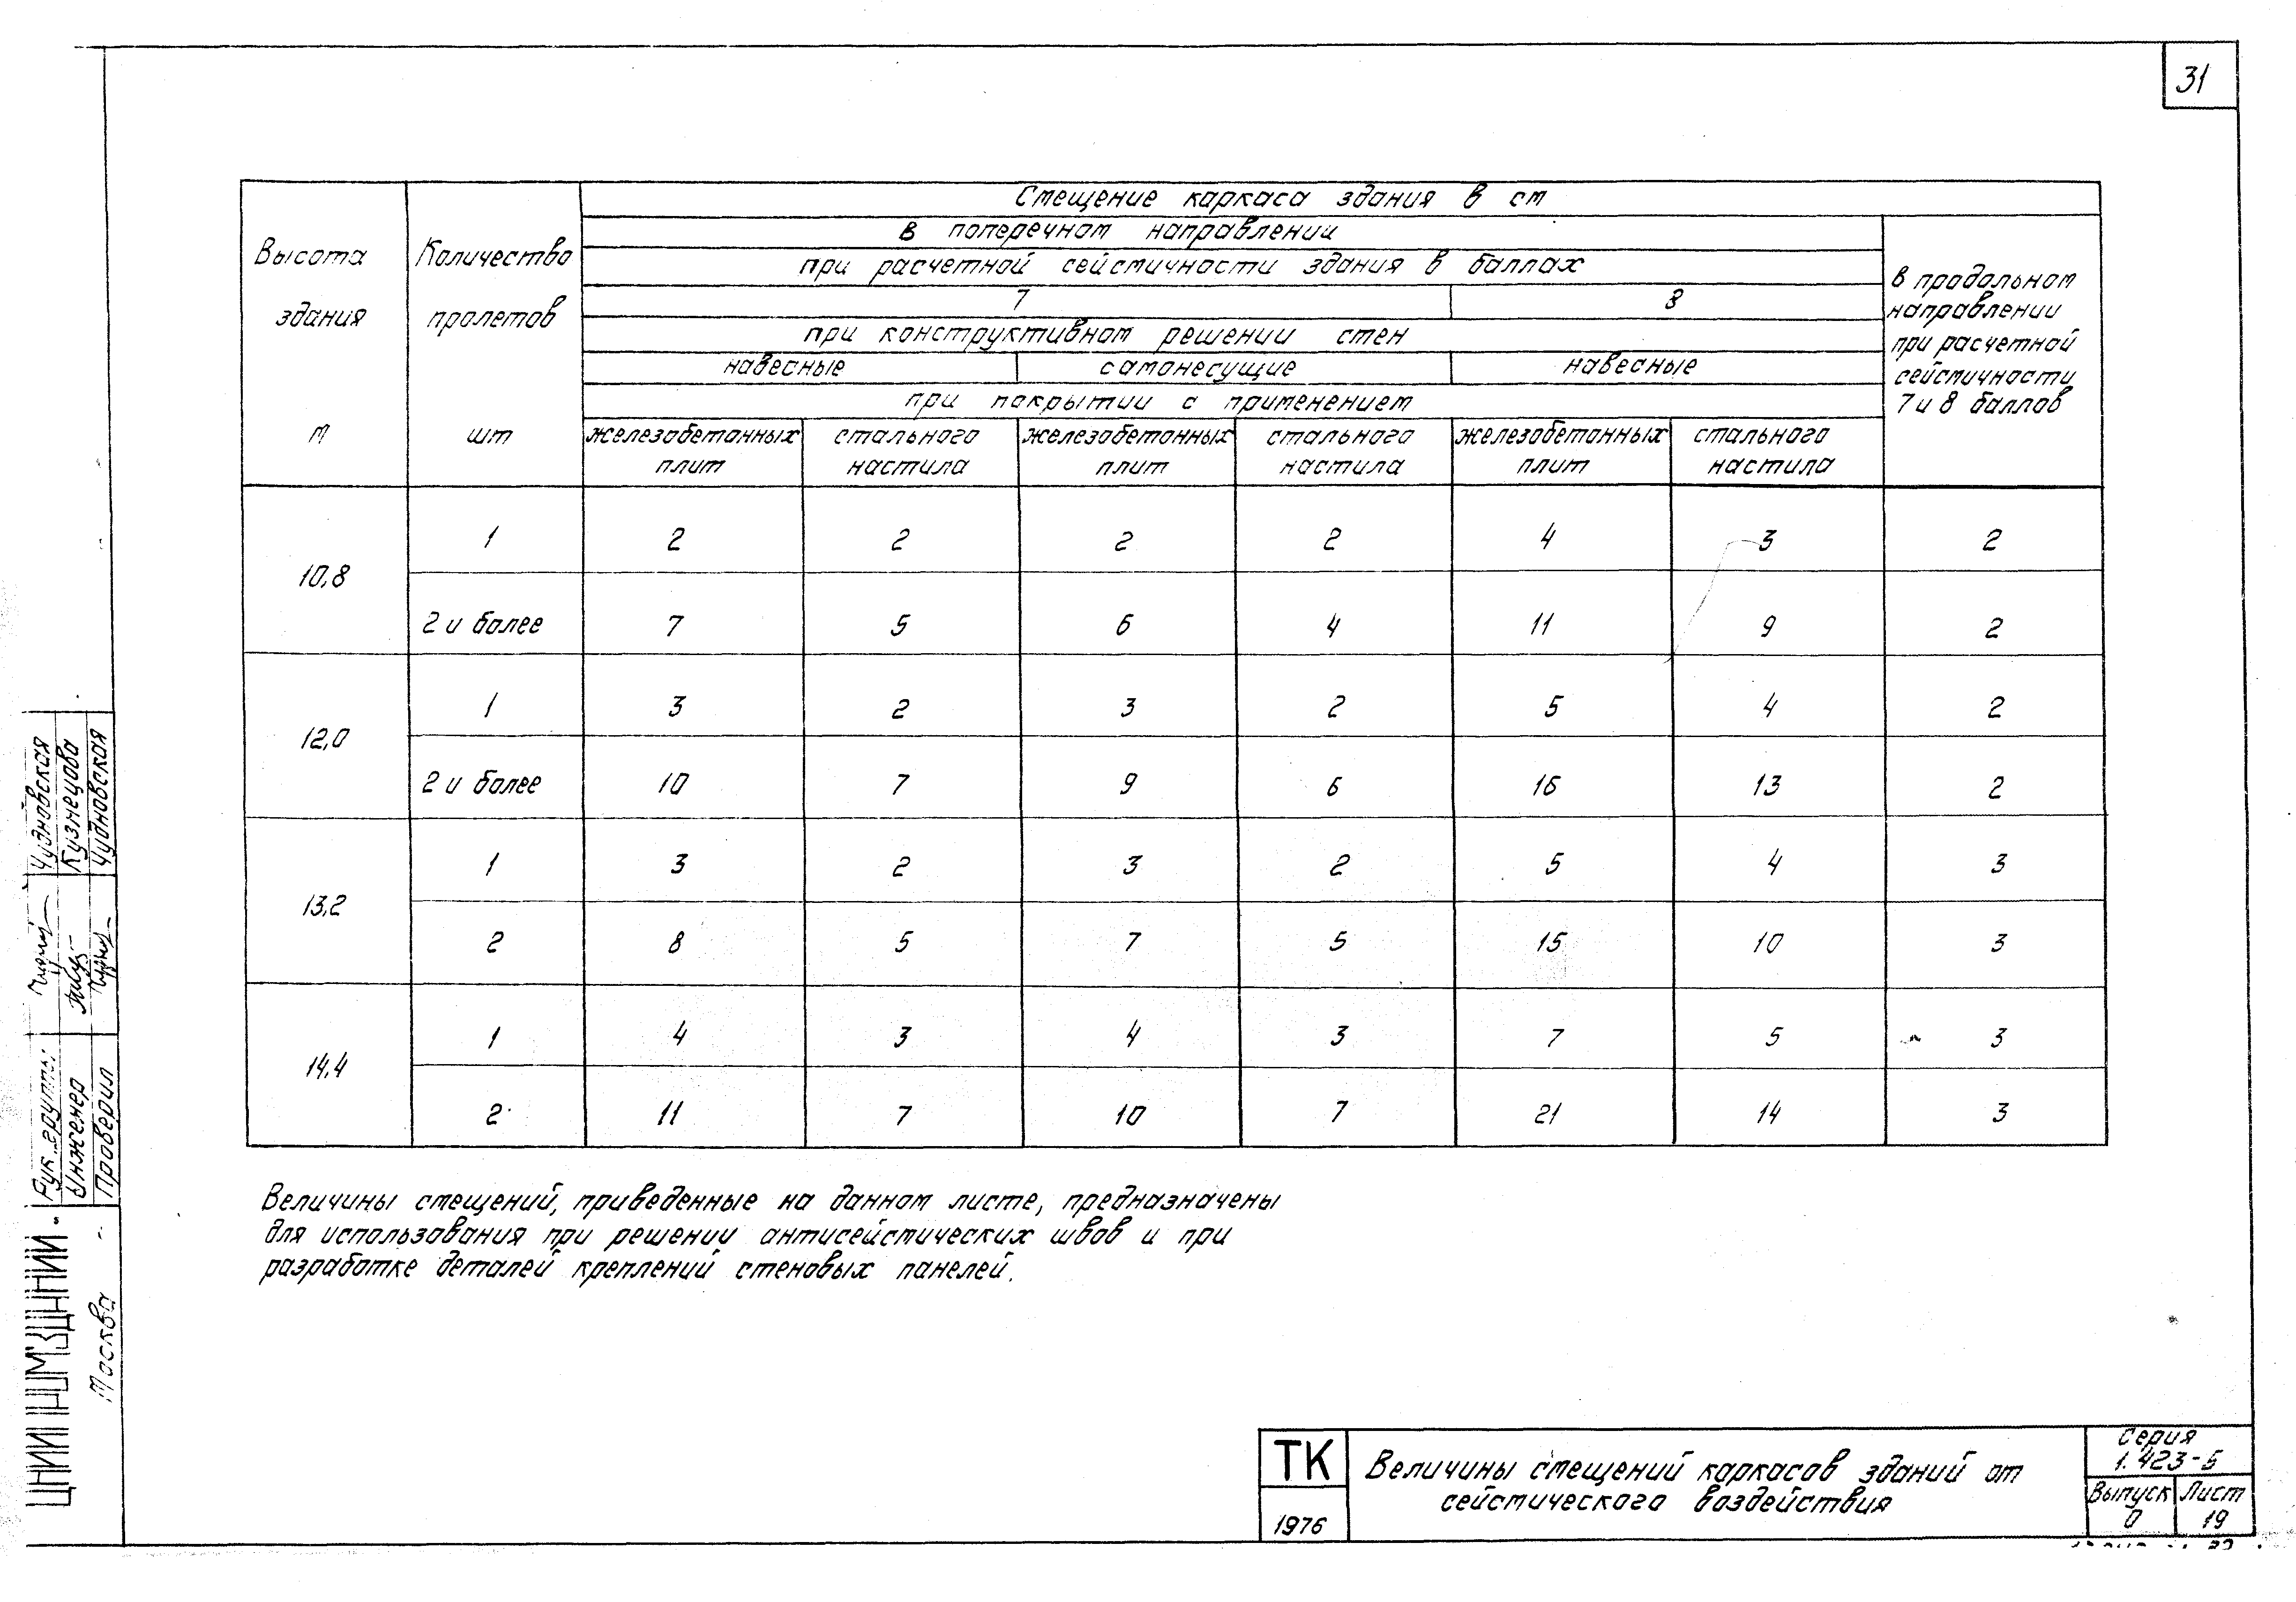 31
Смещение каркаса здания в см
в поперечном направлении
при расчетной сейсмичности здания в баллах
7 8
при конструктивном решении стен
навесные самонесущие навесные
при покрытии с применением
Высота здания м
Количество пролетов шт
железобетонных плит
стального настила
железобетонных плит
стального настила
железобетонных плит
стального настила
в продольном
направлении
при расчетной
сейсмичности
7 и 8 баллов
10,8
1 2 2 2 2 4 3 2
2 и более 7 5 6 4 11 9 2
12,0
1 3 2 3 2 5 4 2
2 и более 10 7 9 6 16 13 2
13,2
1 3 2 3 2 5 4 3
2 8 5 7 5 15 10 3
14,4
1 4 3 4 3 7 5 3
2 11 7 10 7 21 14 3
Величины смещений, приведенные на данном листе, предназначены
для использования при решении антисейсмических швов и при
разработке деталей креплений стеновых панелей.
ТК
1976
Величины смещений каркасов зданий от
сейсмического воздействия
Серия
1.423-5
Выпуск
0
Лист
19
Рук. группы Чудновская
Инженер Кузнецова
Проверил Чудновская
ЦНИИПРОМЗДАНИЙ
Москва